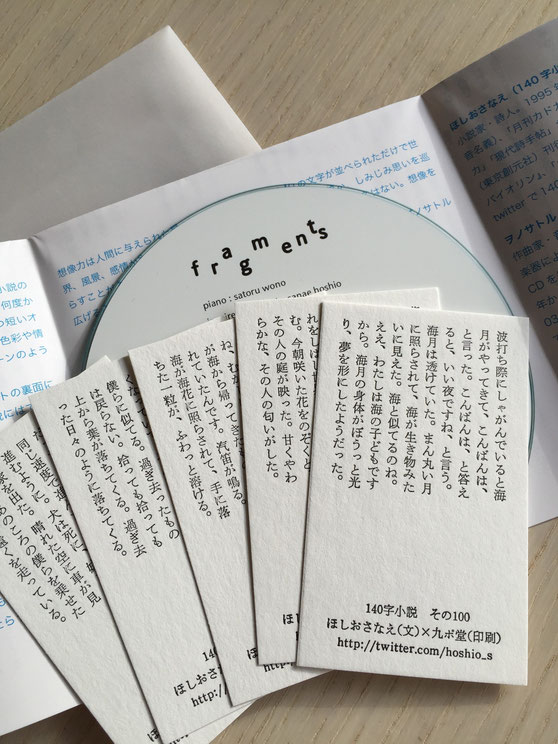 ほしおさなえ(140字小
小説家・詩人。1995年
音名義)、「月刊カドカ
カ」「現代詩手帖」
(東京創元社)刊行
バイオリン」
twitterで1
ヲノサトル
作曲家、
楽器によ
CDを
の文字が並べられただけで世
しみじみ思いを巡
はない。想像を
ヲノサトル
想像力は人間に与えられた
界、風景、感情が
らすことが
広げ
小説の
何度か
つ短いオ
色彩や情
ーンのよう
トの裏面に
fragments
piano : satoru wono
sanae hoshio
波打ち際にしゃがんでいると海
月がやってきて、こんばんは、
と言った。こんばんは、と答え
ると、いい夜ですね、と言う。
海月は透けていた。まん丸い月
に照らされて、海が生き物みた
いに見えた。海と似てるのね。
ええ、わたしは海の子どもです
から。海月の身体がぼうっと光
り、夢を形にしたようだった。
140字小説 その100
ほしおさなえ(文)×九ポ堂(印刷)
http://twitter.com/hoshio_s
む。今朝咲いた花をのぞくと
その人の庭が映った。甘くやわ
らかな、その人の匂いがした。
14
ほしおさ
http:/
ね、むか
が海から帰ってきた
れていたんです。汽笛が鳴る。
海が海花に照らされて、手に落
ちた一粒が、ふわっと溶ける。
140
ほしおさなえ
http://
僕らに似てる。過ぎ去ったもの
は戻らない。拾っても拾っても
上から葉が落ちてくる。過ぎ去
った日々のように落ちてくる。
同じ速度で進
進むように。犬は死に、車
家を出た。晴れた空に
あのころの僕らを乗せた
遠くを走っている。